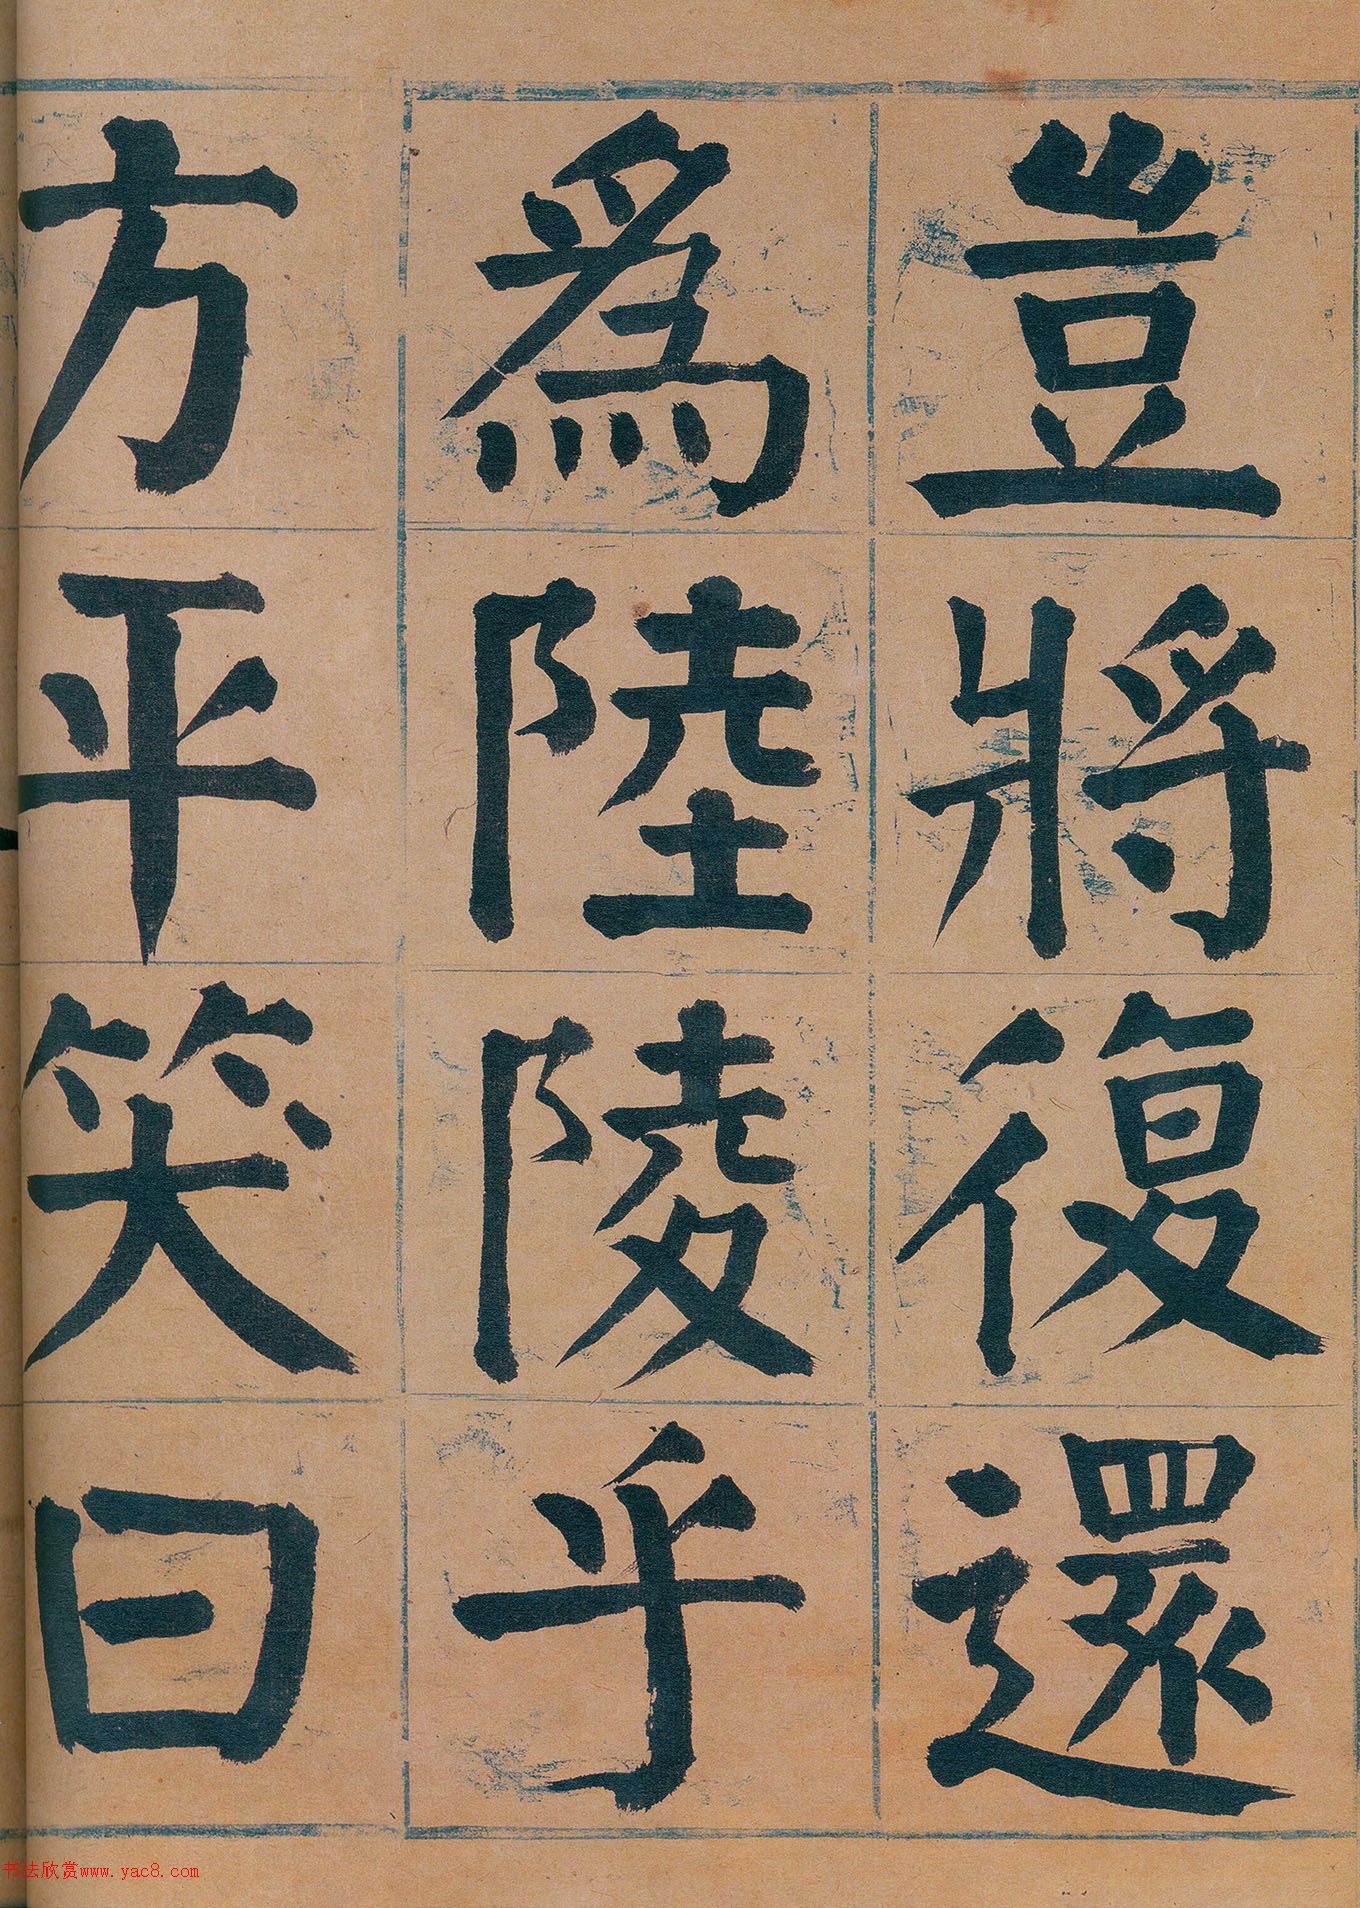 豈將復還
為陸陵乎
方平笑曰
书法欣赏www.yac8.com